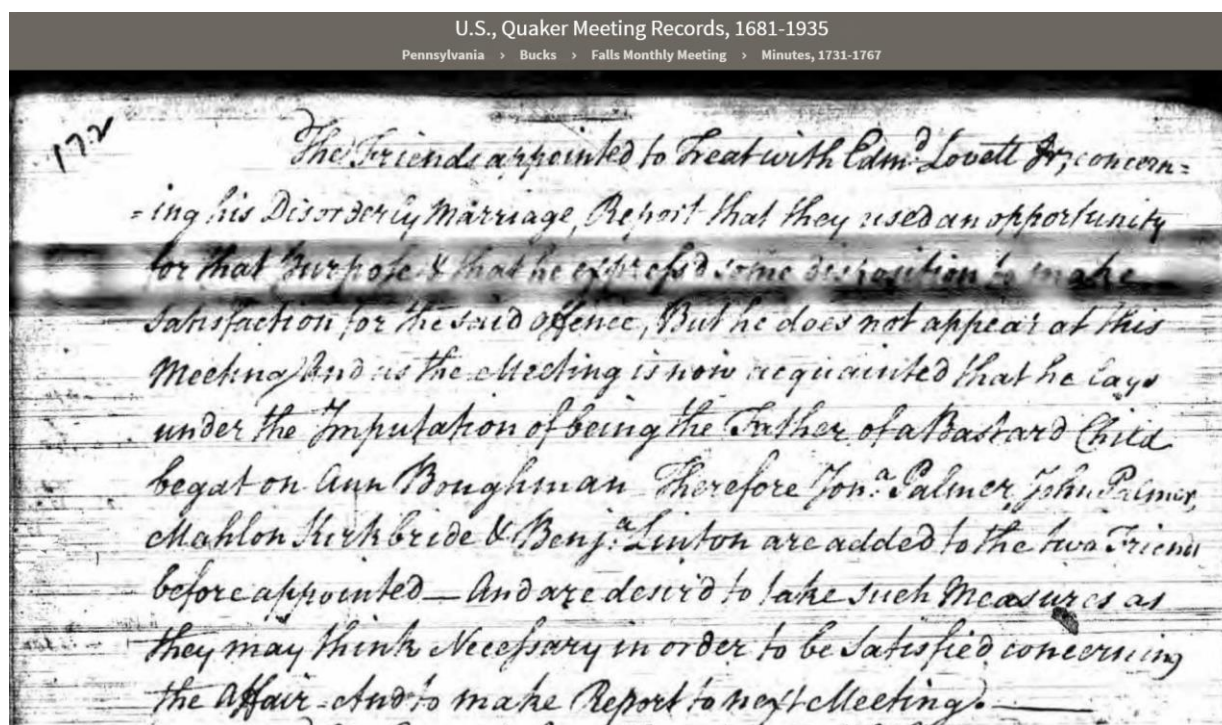 U.S., Quaker Meeting Records, 1681-1935
Pennsylvania > Bucks > Falls Monthly Meeting > Minutes, 1731-1767
172
The Friends appointed to Treat with Edmd. Lovett Jr; concern=
=ing his Disorderly Marriage, Report that they used an opportunity
for that Purpose & that he express'd some disposition to make
Satisfaction for the said offence, But he does not appear at this
Meeting, And as the Meeting is now acquainted that he lays
under the Imputation of being the Father of a Bastard Child
begat on Ann Boughman Therefore Jona. Palmer, John Palmer,
Mahlon Kirkbride & Benja. Linton are added to the two Friends
before appointed — And are desir'd to take such Measures as
they may think Necessary in order to be Satisfied concerning
the Affair - And to make Report to next Meeting. —